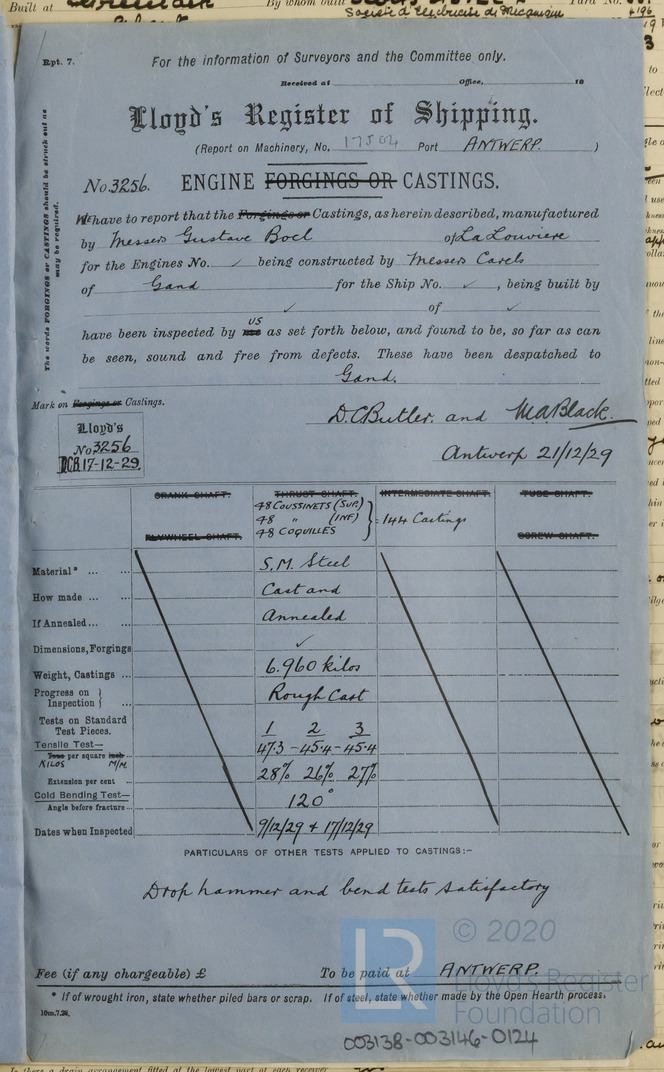 Built at By whom built Yard No.
Société d'Electricité de Mécanique 4196
Rpt. 7. For the information of Surveyors and the Committee only.
Received at Office, 19
Lloyd's Register of Shipping.
(Report on Machinery, No. 17502 Port ANTWERP. )
No 3256. ENGINE FORGINGS OR CASTINGS.
The words FORGINGS or CASTINGS should be struck out as may be required.
We have to report that the Forgings or Castings, as herein described, manufactured
by Messers Gustave Boel of La Louviere
for the Engines No. ✓ being constructed by Messers Carels
of Gand for the Ship No. ✓ , being built by
✓ of ✓
US
have been inspected by me as set forth below, and found to be, so far as can
be seen, sound and free from defects. These have been despatched to
Gand.
Mark on Forgings or Castings.
D.C. Butler. and M.A. Black.
Lloyd's
No 3256
DCB 17-12-29.
Antwerp 21/12/29
CRANK SHAFT. THRUST SHAFT. INTERMEDIATE SHAFT. TUBE SHAFT.
48 COUSSINETS (SUP.)
48 " (INF) } 144 Castings
48 COQUILLES
FLYWHEEL SHAFT. SCREW SHAFT.
Material* ... ... S.M. Steel
How made ... ... Cast and
If Annealed... ... Annealed
Dimensions, Forgings ✓
Weight, Castings ... 6.960 kilos
Progress on Inspection } ... Rough Cast
Tests on Standard Test Pieces. 1 2 3
Tensile Test— 47.3 - 45.4 - 45.4
Tons per square inch
KILOS M/M
Extension per cent 28% 26% 27%
Cold Bending Test—
Angle before fracture... 120°
Dates when Inspected 9/12/29 + 17/12/29
PARTICULARS OF OTHER TESTS APPLIED TO CASTINGS:-
Drop hammer and bend tests satisfactory
Fee (if any chargeable) £ To be paid at ANTWERP.
* If of wrought iron, state whether piled bars or scrap. If of steel, state whether made by the Open Hearth process.
10m.7.28.
© 2020
LR
Lloyd's Register
Foundation
003138-003146-0124
Is there a drain arrangement fitted at the lowest part of each receiver